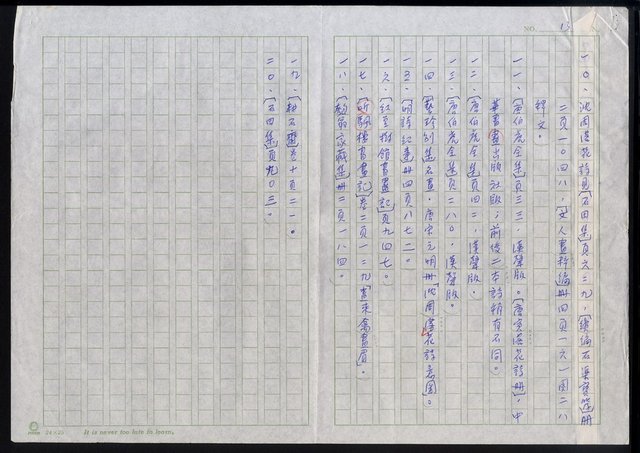 NO. 13
一〇、沈周落花詩見〔石田集〕頁六三九，〔續編石渠寶笈〕冊
二頁一〇四八，〔文人畫粹編〕冊四頁一六一圖二八
釋文。
一一、〔唐伯虎全集〕頁三三，漢聲版。〔唐寅落花詩冊〕，中
華書畫出版社版；前後二本詩稍有不同。
一二、〔唐伯虎全集〕頁四二，漢聲版。
一三、〔唐伯虎全集〕頁二八〇，漢聲版。
一四、〔藝珍別集〕名畫，唐宋元明冊〔沈周落花詩意圖〕。
一五、〔明詩紀事〕冊四頁八七二。
一六、〔紅豆樹館書畫記〕頁九四七。
一七、〔聽颿樓書畫記〕卷二頁一二九〔書來禽畫眉〕。
一八、〔穀翁家藏集〕冊二頁一八四。
一九、〔柏石〕卷十頁二一。
二〇、〔石田集〕頁九〇三。
24×25 It is never too late to learn.